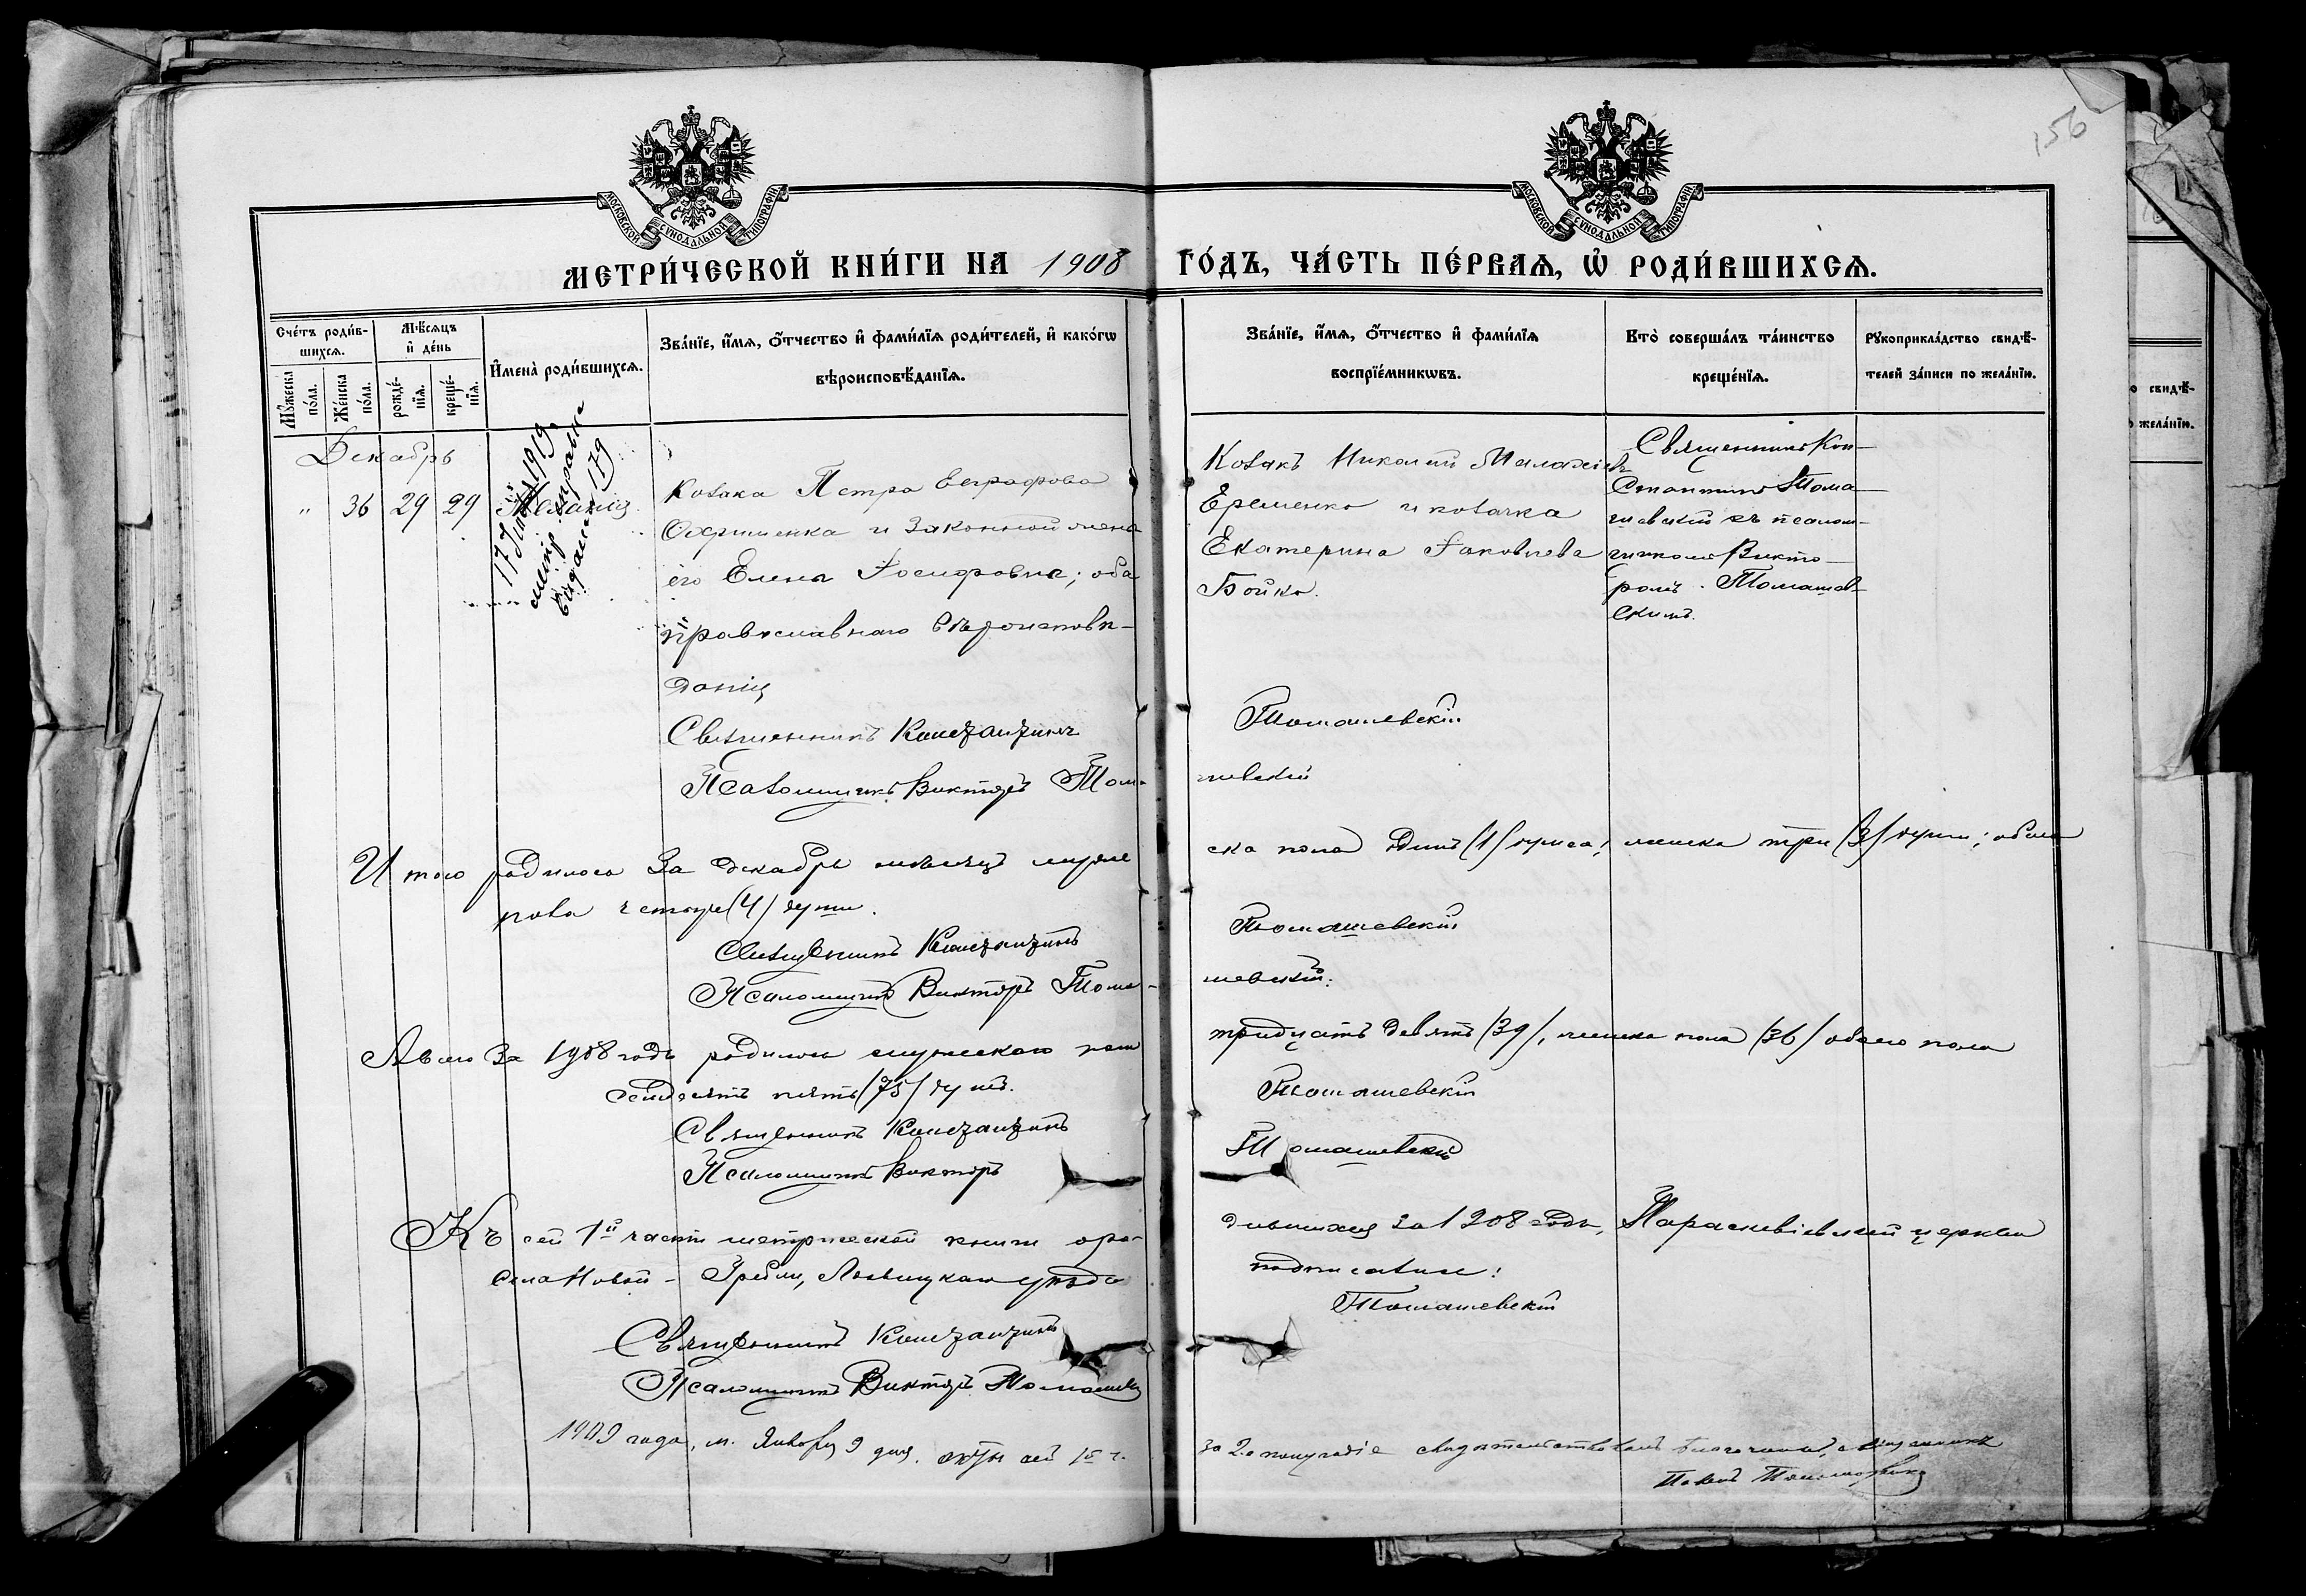 156
МОСКОВСКОЙ СУНОДАЛЬНОЙ ТИПОГРАФІИ
МОСКОВСКОЙ СУНОДАЛЬНОЙ ТИПОГРАФІИ
МЕТРИ́ЧЕСКОЙ КНИ́ГИ НА 1908 ГО́ДЪ, ЧА́СТЬ ПЕ́РВАѦ, Ѡ҆ РОДИ́ВШИХСѦ.
Сче́тъ роди́в-
шихсѧ.
Мꙋ́жеска по́ла.
Же́нска по́ла.
Мѣ́сѧцъ и҆ де́нь
рожде́-нїѧ.
креще́-нїѧ.
И҆мена̀ роди́вшихсѧ.
Зва́нїе, и҆́мѧ, ѻ҆́тчество и҆ фами́лїѧ роди́телей, и҆ како́гѡ
вѣроисповѣ́данїѧ.
Зва́нїе, и҆́мѧ, ѻ҆́тчество и҆ фами́лїѧ
воспрїе́мникѡвъ.
Кто̀ соверша́лъ та́инство
креще́нїѧ.
Рꙋкоприкла́дство свидѣ́-
телей за́писи по жела́нїю.
Декабрь
" 36 29 29 Меланія
1919
метр. справка
выдана 179
Козака Петра Евграфова
Охрименка и законной жена
его Елена Іосифовна; оба
православнаго вѣроисповѣ-
данія
Священникъ Константинъ
Псаломщикъ Викторъ Тома-
Козакъ Николай Малахіевъ
Еременко и козачка
Екатерина Іаковлева
Бойко.
Священникъ Кон-
стантинъ Тома-
шевскій съ псалом-
щикомъ Викто-
ромъ Томашев-
скимъ.
Томашевскій
шевскій
Итого родилось за декабрь мѣсяцъ муже
ска пола одинъ (1) душа, женска три (3) души; обоего
пола четыре (4) души.
Священникъ Константинъ Томашевскій
Псаломщикъ Викторъ Тома-
шевскій.
А всего за 1908 годъ родилось мужескаго пола
тридцать девять (39), женска пола (36) обоего пола
семдесятъ пять (75) душъ.
Священникъ Константинъ Томашевскій
Псаломщикъ Викторъ Томашевскій
Къ сей 1й части метрической книги о ро-
дившихся за 1908 годъ, Параскевіевской церкви
села Новой-Гребли, Лохвицкаго уѣзда подписались:
Священникъ Константинъ Томашевскій
Псаломщикъ Викторъ Томашевскій
1909 года, м. Января 9 дня. сей 1й ч.
за 2е полугодіе свидѣтельствовалъ благочинный, священникъ
Павелъ
свидѣ́-
жела́нїю.